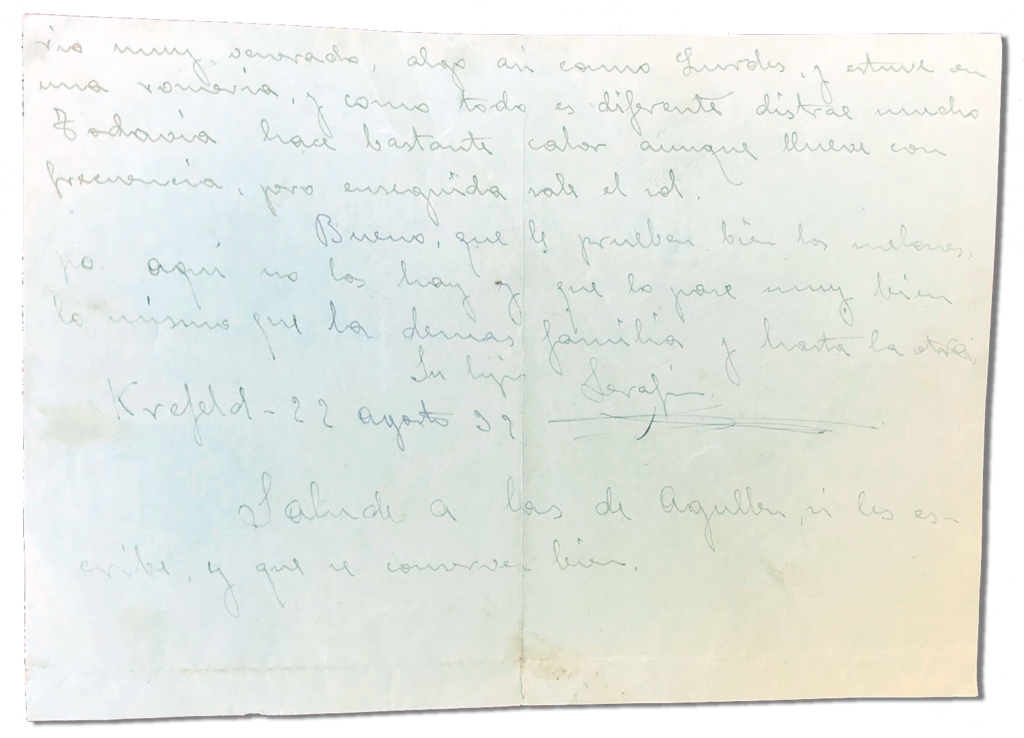 rio muy venerado, algo asi como Lurdes, y estuve en
una romeria, y como todo es diferente distrae mucho
Todavia hace bastante calor aunque llueve con
frecuencia, pero enseguida sale el sol.
Bueno, que le prueben bien los melones,
aqui no los hay y que lo pase muy bien
lo mismo que la demas familia y hasta la otra,
Su hijo Serafin.
Krefeld - 22 agosto 39
Salude a las de Agullen, si les es-
cribe, y que se conserven bien.